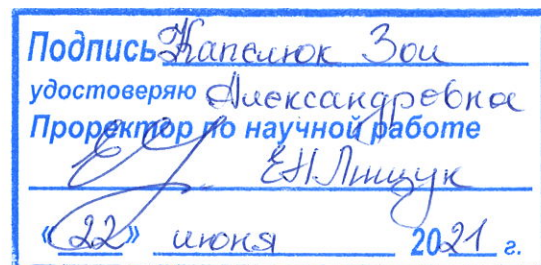 Подпись Капелюк Зои
удостоверяю Александровна
Проректор по научной работе
ЕН Лищук
«22» июня 2021 г.